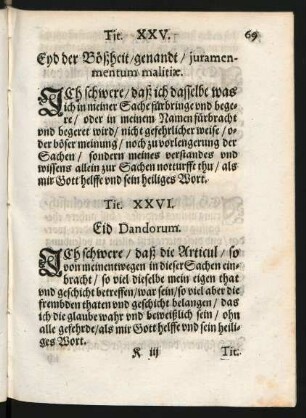 Tit. XXV. 69
Eyd der Bößheit/genandt/juramen-
mentum malitiæ.
ICh schwere/daß ich dasselbe was
ich in meiner Sache fürbringe vnd bege-
re/oder in meinem Namen fürbracht
vnd begeret wird/nicht gefehrlicher weise/o-
der böser meinung/noch zu vorlengerung der
Sachen/sondern meines verstandes vnd
wissens allein zur Sachen notturfft thu/als
mir Gott helffe vnd sein heiliges Wort.
Tit. XXVI.
Eid Dandorum.
ICh schwere/daß die Articul/so
von meinentwegen in dieser Sachen ein-
bracht/so viel dieselbe mein eigen that
vnd geschicht betreffen/war sein/so viel aber die
frembden thaten vnd geschicht belangen/das
ich die glaube wahr vnd beweißlich sein/ohn
alle gefehrde/als mir Gott helffe vnd sein heili-
ges Wort.
K iij Tit.